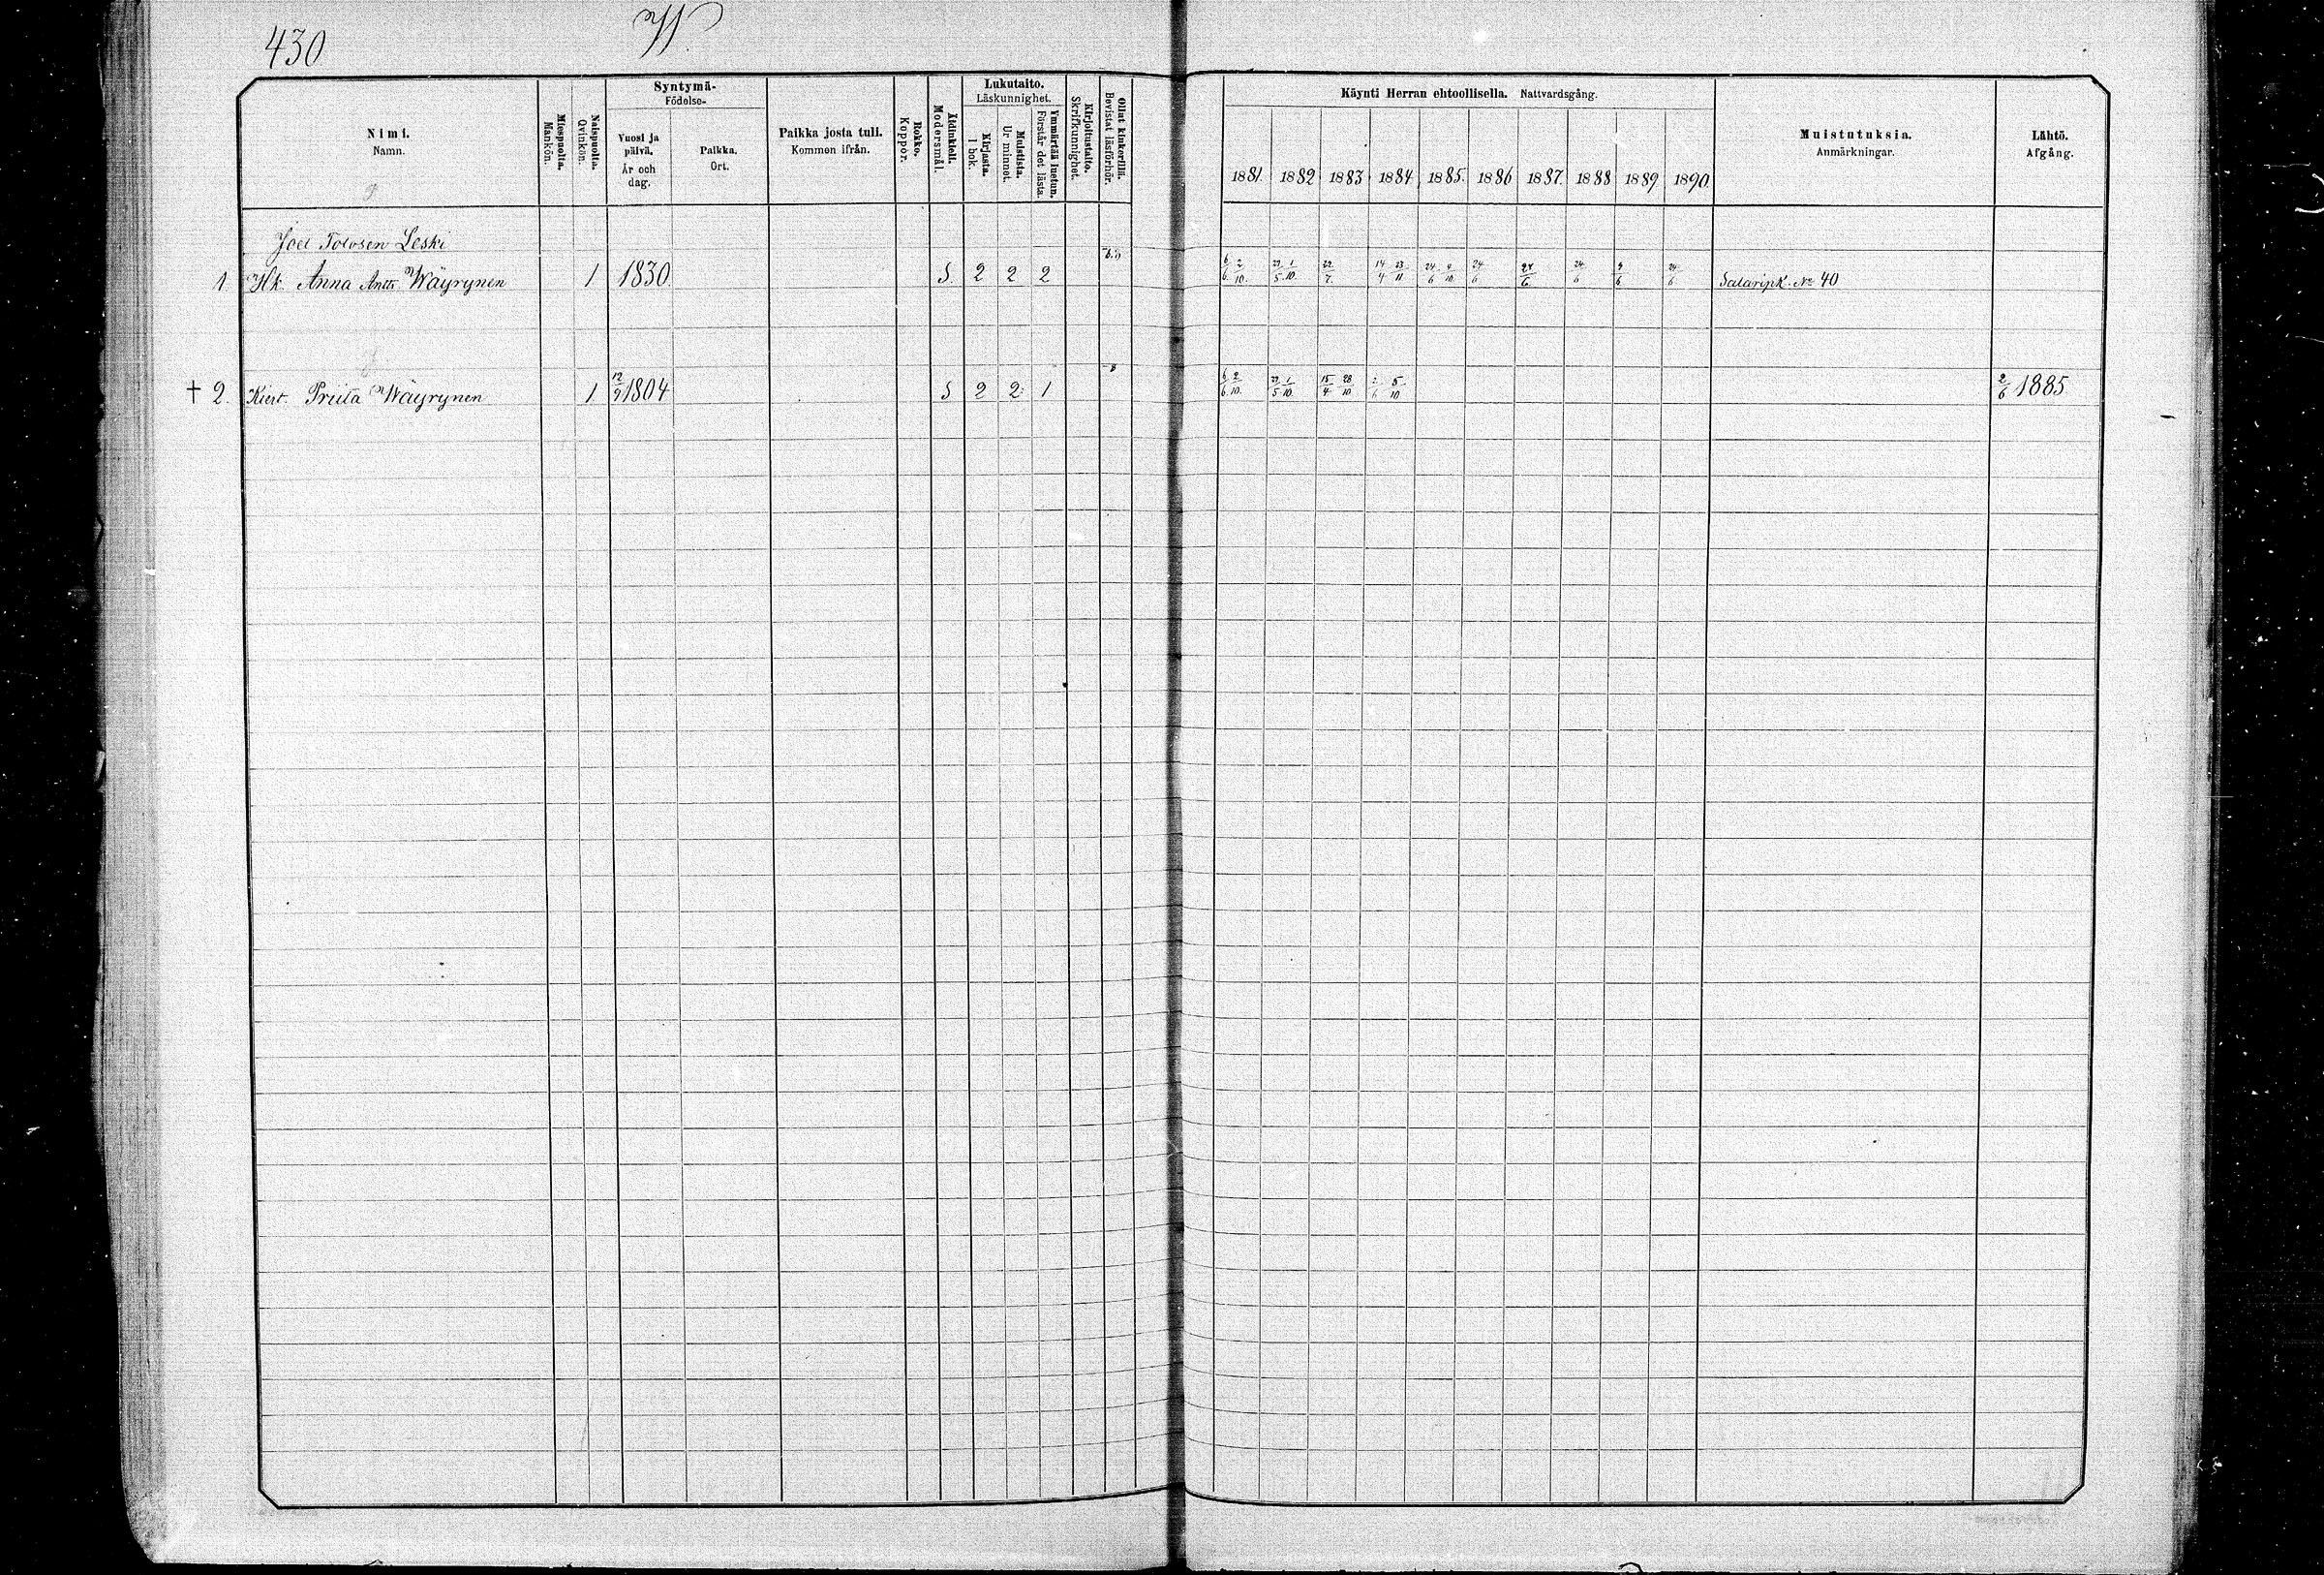 430 W.
Nimi. Namn.
Miespuolta. Mankön.
Naispuolta. Qvinkön.
Syntymä- Födelse-
Vuosi ja päivä. År och dag.
Paikka. Ort.
Paikka josta tuli. Kommen ifrån.
Rokko. Koppor.
Äidinkieli. Modersmål.
Lukutaito. Läskunnighet.
Kirjasta. I bok.
Muistista. Ur minnet.
Ymmärtää luetun. Förstår det lästa.
Kirjoitustaito. Skrifkunnighet.
Ollut kinkerillä. Bevistat läsförhör.
Käynti Herran ehtoollisella. Nattvardsgång.
1881. 1882 1883 1884 1885. 1886 1887. 1888 1889 1890.
Muistutuksia. Anmärkningar.
Lähtö. Afgång.
Joel Tolosen Leski
1. Hk. Anna Antts Wäyrynen 1 1830. S. 2 2 2 6/6. 2/10. 29/5. 1/10. 22/7. 14/4 23/11 24/6 4/10. 24/6 24/6. 24/6 9/6 24/6 Salaripk. No 40
† 2. Kiert. Priita Wäyrynen 1 12/9 1804 S 2 2 1 6/6. 2/10. 29/5 1/10. 15/4 28/10 5/10 2/6 1885